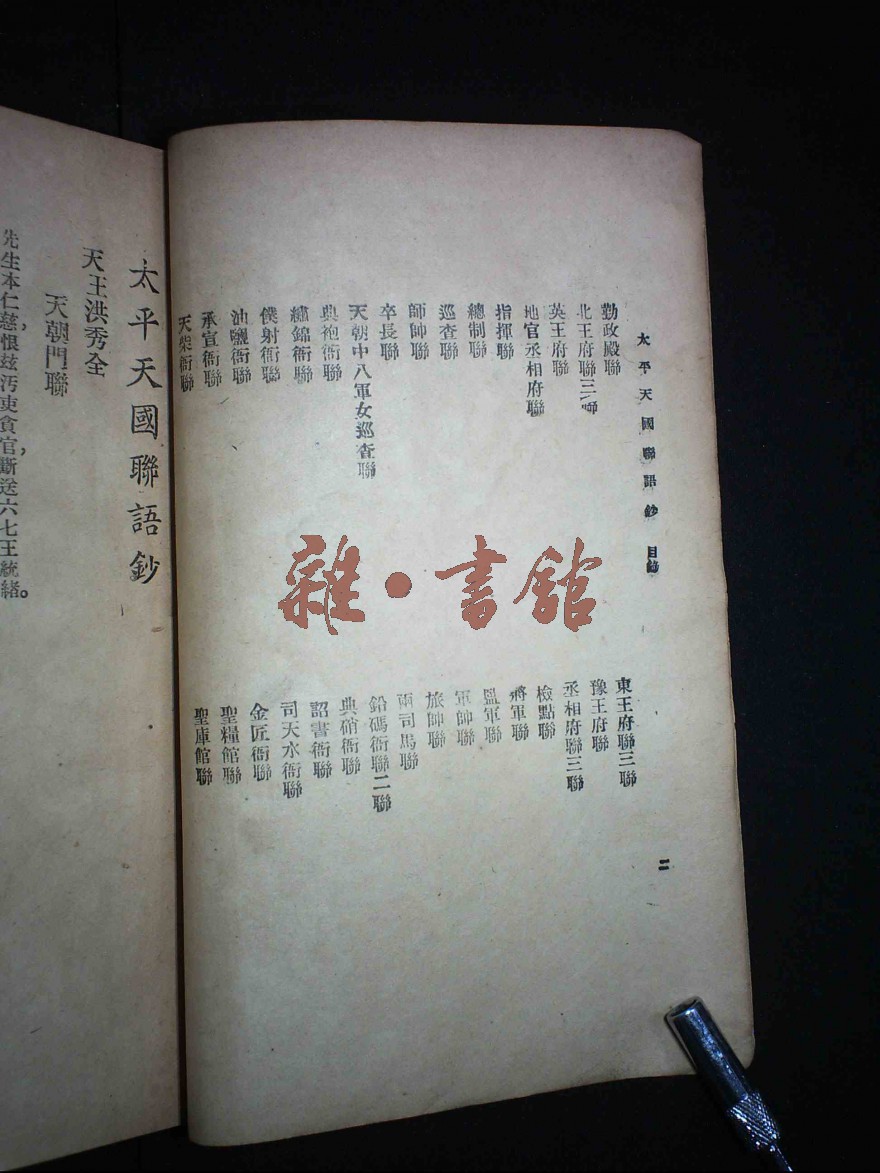 太平天國聯語鈔 目錄
二
勤政殿聯
北王府聯三聯
英王府聯
地官丞相府聯
指揮聯
總制聯
巡查聯
師帥聯
卒長聯
天朝中八軍女巡查聯
典袍衙聯
繡錦衙聯
僕射衙聯
油鹽衙聯
承宣衙聯
天柴衙聯
東王府聯三聯
豫王府聯
丞相府聯三聯
檢點聯
將軍聯
監軍聯
軍帥聯
旅帥聯
兩司馬聯
鉛碼衙聯二聯
典硝衙聯
詔書衙聯
司天水衙聯
金匠衙聯
聖糧館聯
聖庫館聯
雜·書館
太平天國聯語鈔
天王洪秀全
天朝門聯
先生本仁慈，恨玆汚吏貪官，斷送六七王統緒。